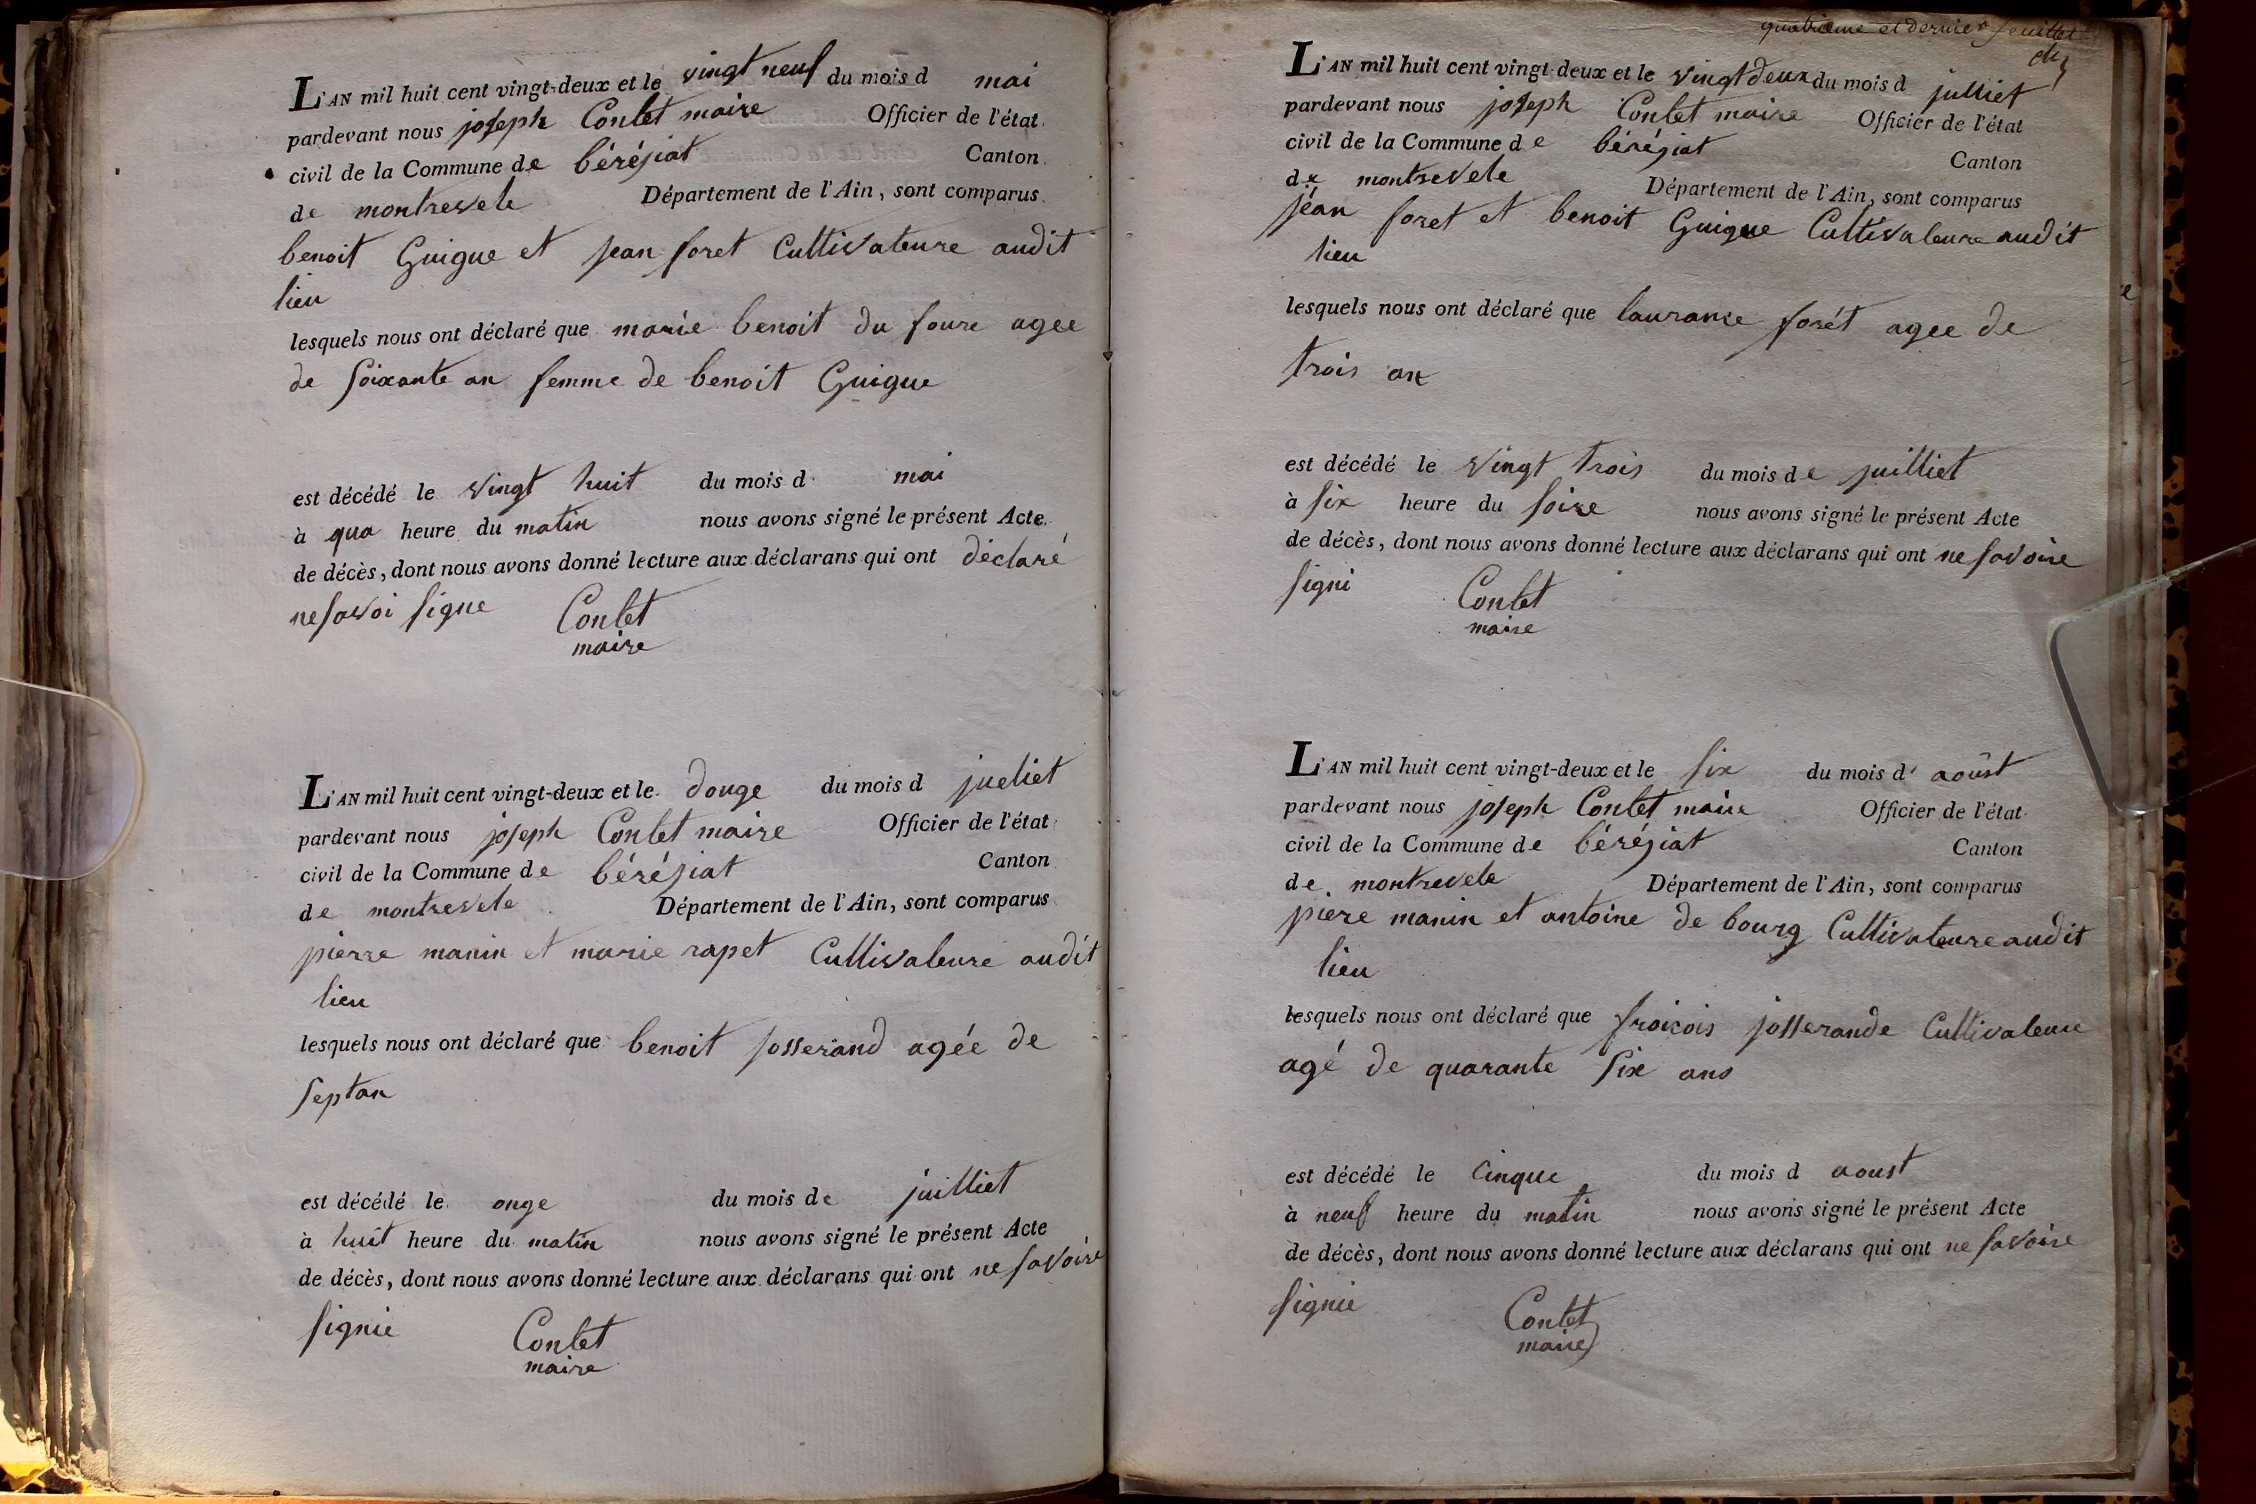 L'AN mil huit cent vingt-deux et le vingt neuf du mois d mai
pardevant nous joseph Contet maire Officier de l'état
civil de la Commune de béréziat Canton
de montrevele Département de l'Ain, sont comparus
benoit Guigue et jean foret Cultivateure audit
lieu
lesquels nous ont déclaré que marie benoit du foure agee
de soixante an femme de benoit Guigue
est décédé le vingt huit du mois d mai
à qua heure du matin nous avons signé le présent Acte
de décès, dont nous avons donné lecture aux déclarans qui ont déclaré
ne savoi signe Contet
maire
L'AN mil huit cent vingt-deux et le douze du mois d jueliet
pardevant nous joseph Contet maire Officier de l'état
civil de la Commune de béréziat Canton
de montrevele Département de l'Ain, sont comparus
pierre manin et marie rapet Cultivateure audit
lieu
lesquels nous ont déclaré que benoit josserand agée de
sept an
est décédé le onze du mois de juilliet
à huit heure du matin nous avons signé le présent Acte
de décès, dont nous avons donné lecture aux déclarans qui ont ne savoire
signie Contet
maire
quatrieme et dernier feuillet
L'AN mil huit cent vingt-deux et le vingt deux du mois d julliet
pardevant nous joseph Contet maire Officier de l'état
civil de la Commune de béréziat Canton
de montrevele Département de l'Ain, sont comparus
jéan foret et benoit Guigue Cultivateure audit
lieu
lesquels nous ont déclaré que lauranse forét agee de
trois an
est décédé le vingt trois du mois de juilliet
à six heure du soire nous avons signé le présent Acte
de décès, dont nous avons donné lecture aux déclarans qui ont ne savoire
signi Contet
maire
L'AN mil huit cent vingt-deux et le six du mois d' aoûst
pardevant nous joseph Contet maire Officier de l'état
civil de la Commune de béréziat Canton
de montrevele Département de l'Ain, sont comparus
piere manin et antoine de bourg Cultivateure audit
lieu
lesquels nous ont déclaré que froicois josserande Cultivateure
agé de quarante six ans
est décédé le Cinque du mois d aoust
à neuf heure du matin nous avons signé le présent Acte
de décès, dont nous avons donné lecture aux déclarans qui ont ne savoire
signie Contet
maire